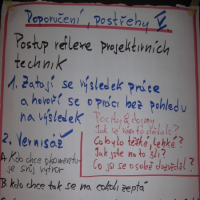 Doporučení, postřehy E.
Postup reflexe projektivních
technik
1. Zatají se výsledek práce
a hovoří se o práci bez pohledu
na výsledek
Pocity & dojmy
Jak se vám to dělalo?
Co bylo těžké, lehké?
Jak jste na to šli?
Co jsi se o sobě dozvěděl?
2. Vernisáž
A: Kdo chce okomentuje
svůj výtvor
B kdo chce tak se na cokoli zeptá